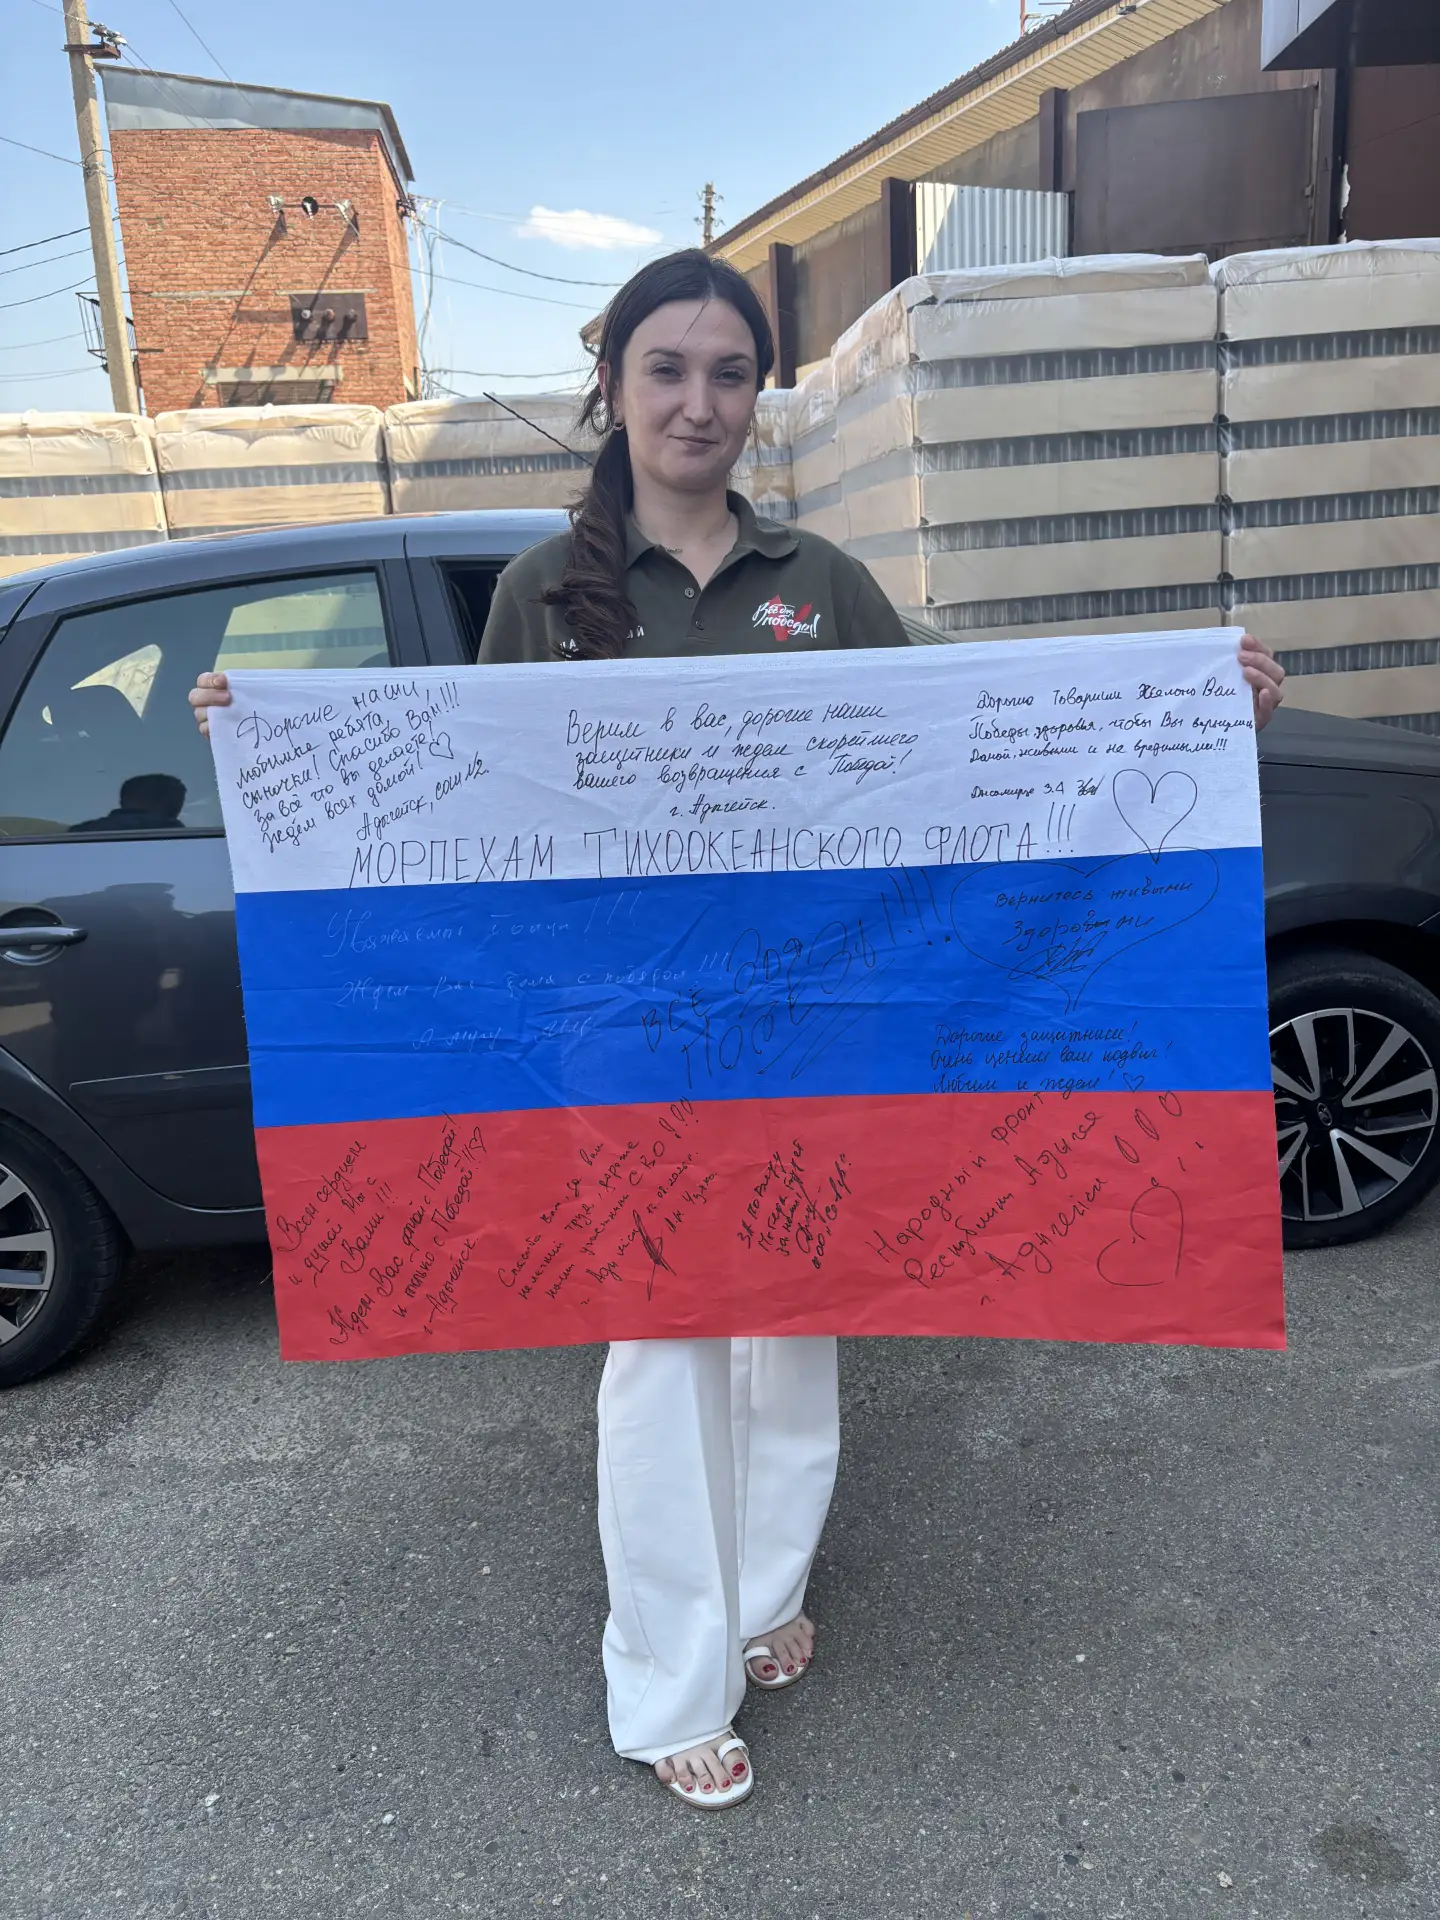 Всё для
победы!
Дорогие наши,
любимые ребята,
сыночки! Спасибо Вам!!!
За всё что вы делаете
Ждём всех домой!
Адыгейск, сош N2.
Верим в вас, дорогие наши
защитники и ждем скорейшего
вашего возвращения с Победой!
г. Адыгейск.
Дорогие Товарищи Желаю Вам
Победы, здоровья, чтобы Вы вернулись
Домой, живыми и не вредимыми!!!
З.А
МОРПЕХАМ ТИХООКЕАНСКОГО ФЛОТА!!!
Уважаемые
Ждем Вас дома с победой!!!
ВСЁ ДЛЯ
ПОБЕДЫ!!!!
Вернитесь живыми
Здоровыми
Дорогие защитники!
Очень ценим ваш подвиг!
Любим и ждем!
Всем сердцем
и душой мы с
Вами!!!
Ждем Вас домой с Победой!
и только с Победой!!
г. Адыгейск.
Спасибо Вам, за ваш
нелегкий труд, дорогие
наши участники СВО!???
г.
За победу
Победа будет
за нами!
Народный фронт
Республики Адыгея
г. Адыгейск